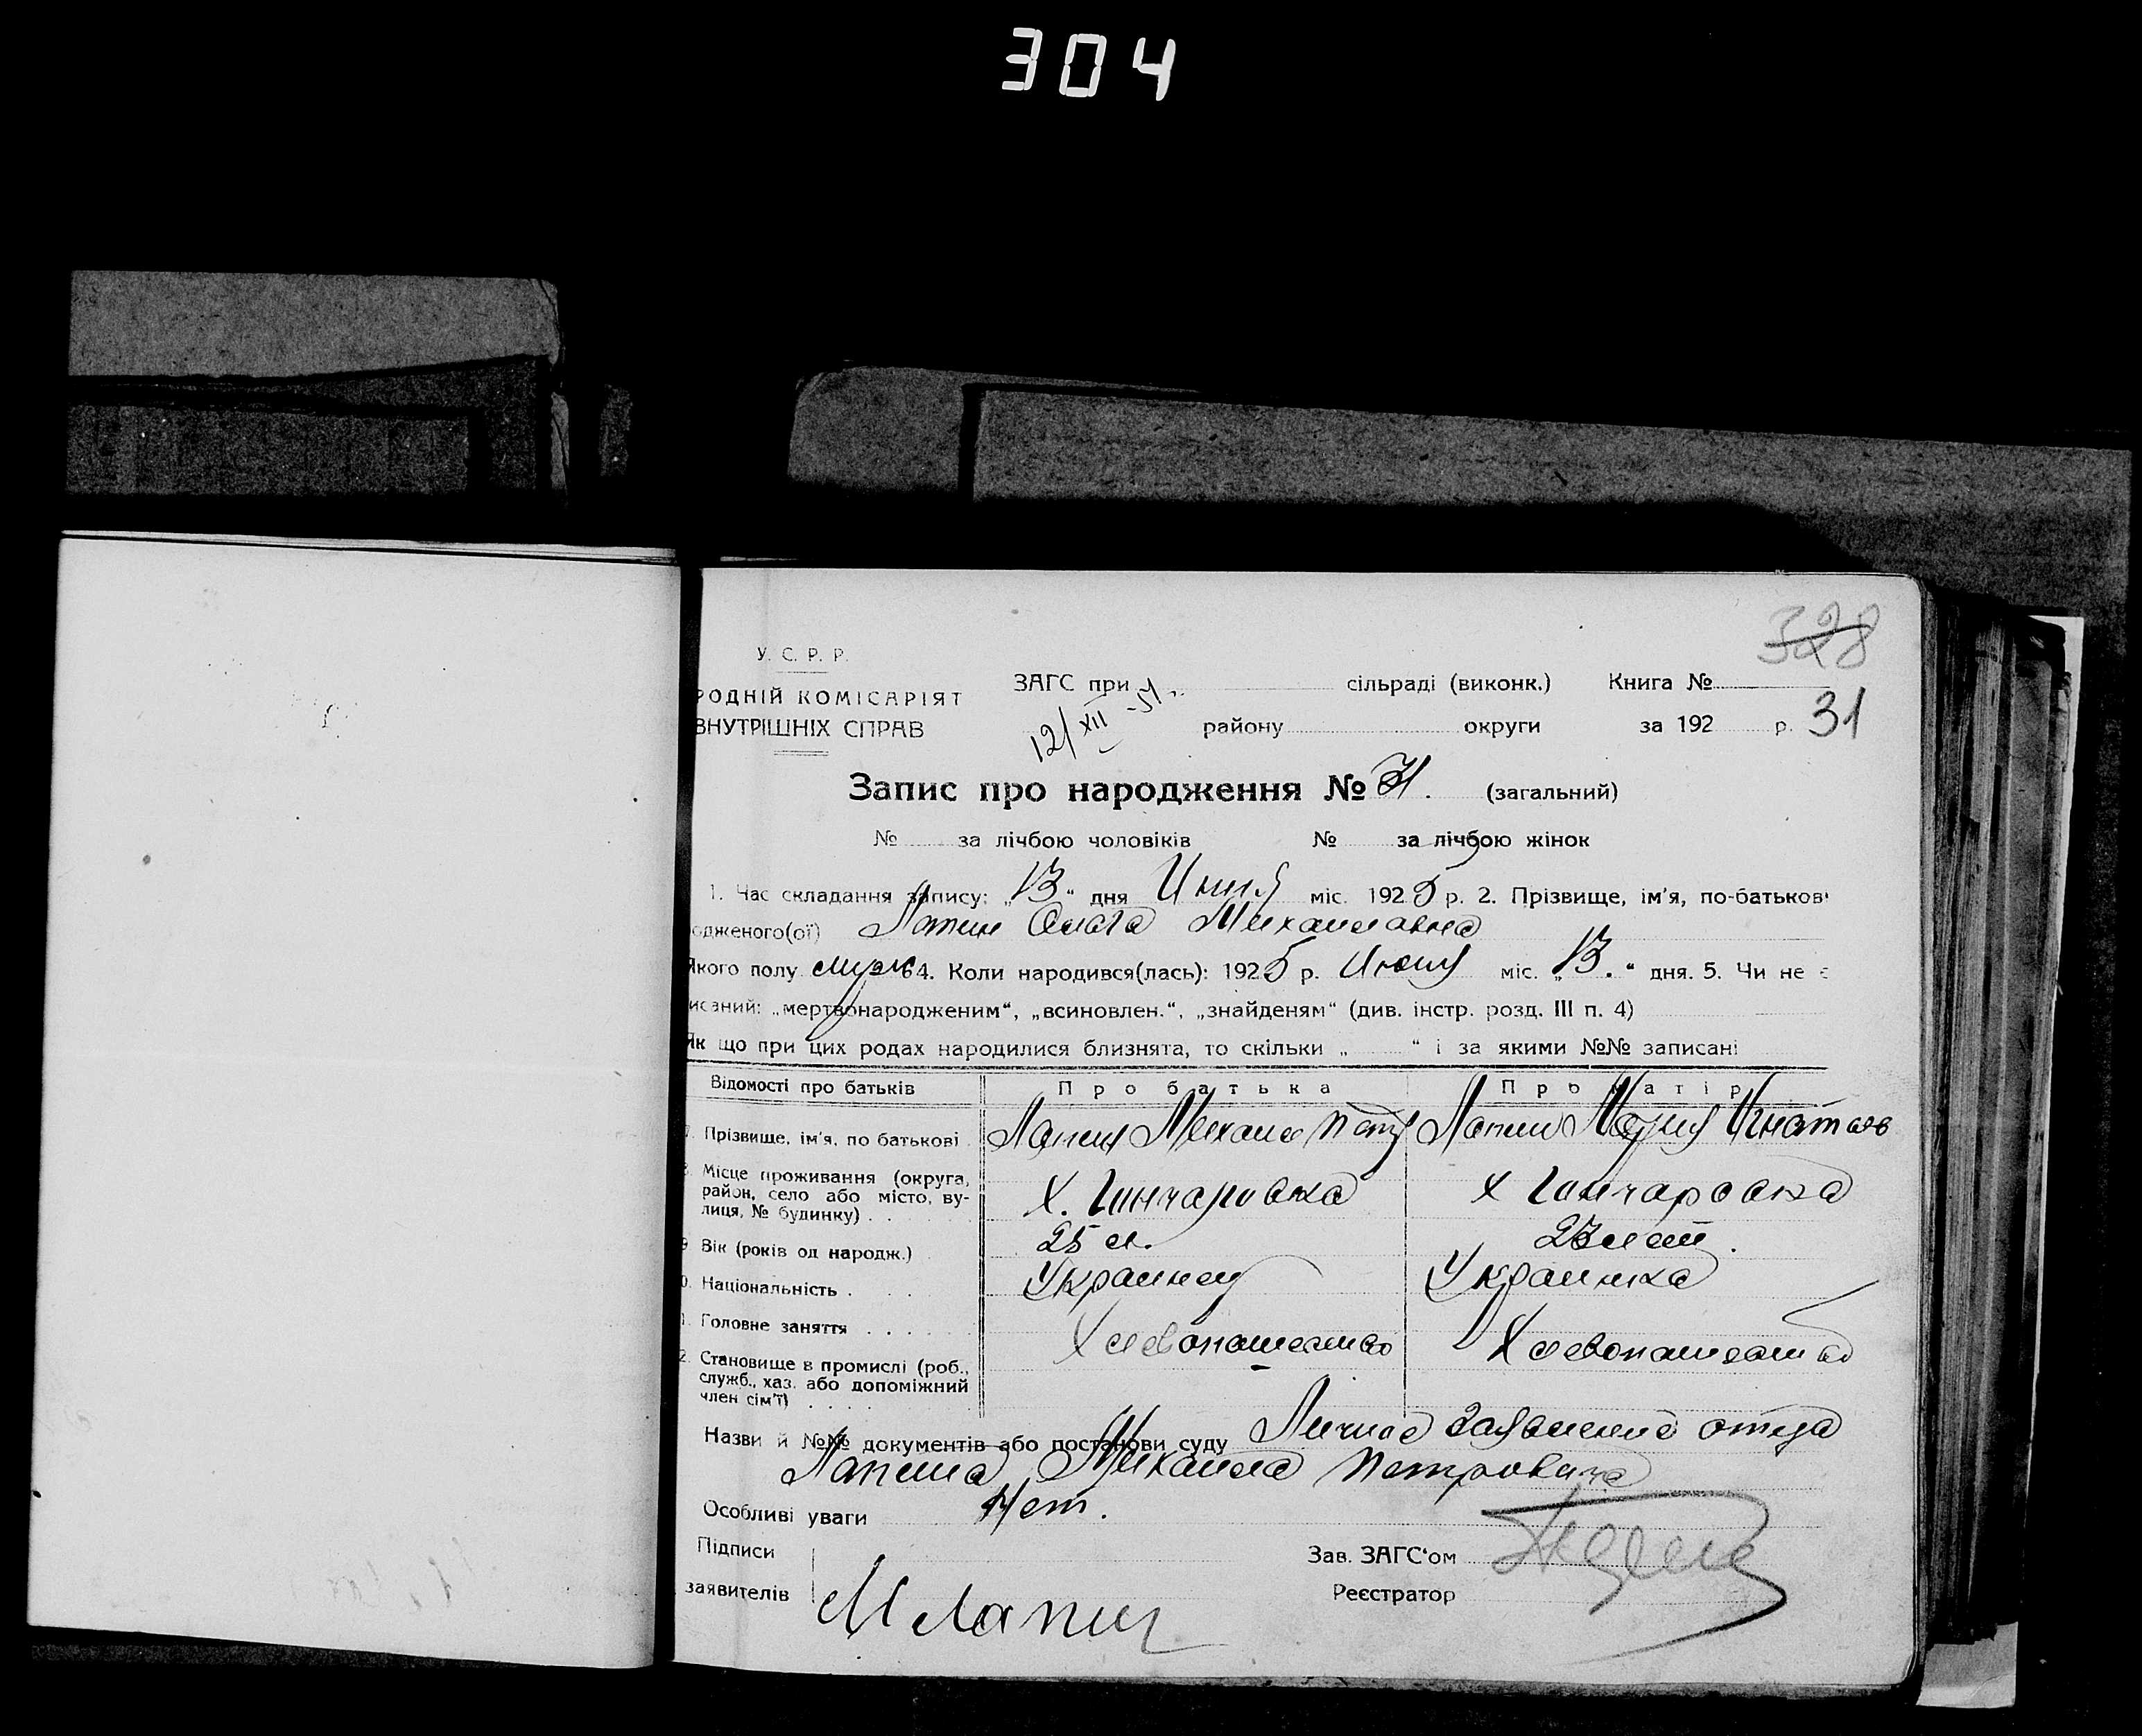 304
328
У. С. Р. Р.
РОДНІЙ КОМІСАРІЯТ
ВНУТРІШНІХ СПРАВ
ЗАГС при сільраді (виконк.) Книга №
12/XII-51
району округи за 192 р. 31
Запис про народження № 31. (загальний)
№ за лічбою чоловіків № за лічбою жінок
1. Час складання запису: „13“ дня Июня міс. 1925 р. 2. Прізвище, ім'я, по-батьков
одженого(ої) Лапин Ольга Михайловна
Якого полу 4. Коли народився(лась): 1925 р. Июня міс. „13.“ дня. 5. Чи не є
исаний: „мертвонародженим“, „всиновлен.“, „знайденям“ (див. інстр. розд. III п. 4)
Як що при цих родах народилися близнята, то скільки „ “ і за якими №№ записані
Відомості про батьків Про батька Про матір
7. Прізвище, ім'я, по батькові Лапин Михаил Петр Лапин Мария Игнатов
Місце проживання (округа,
район, село або місто, ву-
лиця, № будинку) . . Х. Гончаровка х Гончаровка
9 Вік (років од народж.) 25 л. 23 лет.
0. Національність . . . Украинец Украинка
1. Головне заняття . . . . . . Хлебопашество Хлебопашество
2. Становище в промислі (роб.,
служб., хаз. або допоміжний
член сім'ї) . . . .
Назви й №№ документів або постанови суду Личное заявление отца
Лапина Михаила Петровича
Особливі уваги Нет.
Підписи
заявителів М Лапин
Зав. ЗАГС'ом
Реєстратор